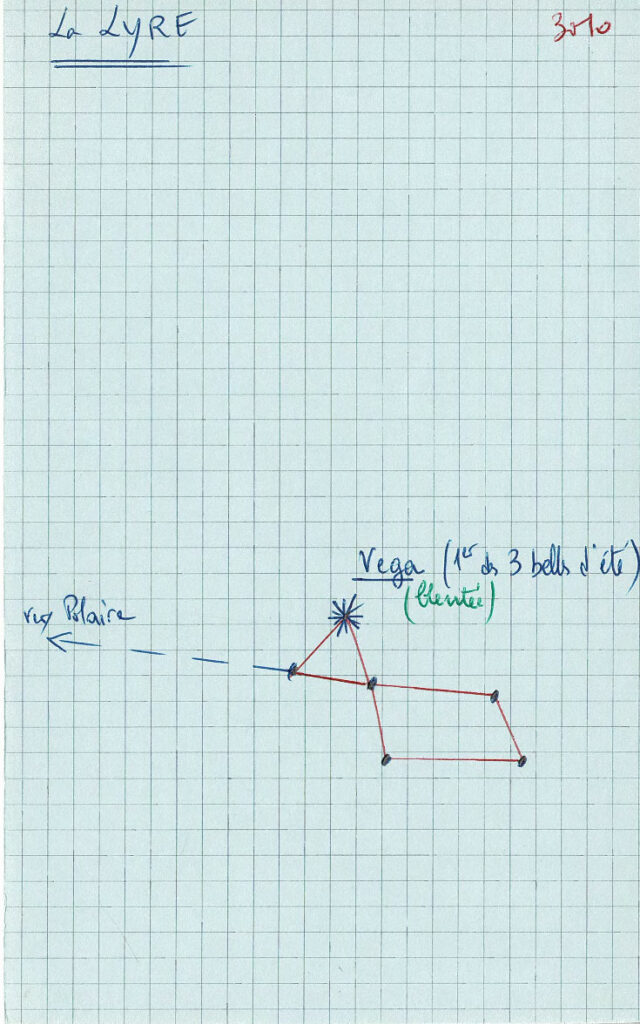 La LYRE
3010
Vega (1er des 3 belles d'été)
(bleutée)
vers Polaire